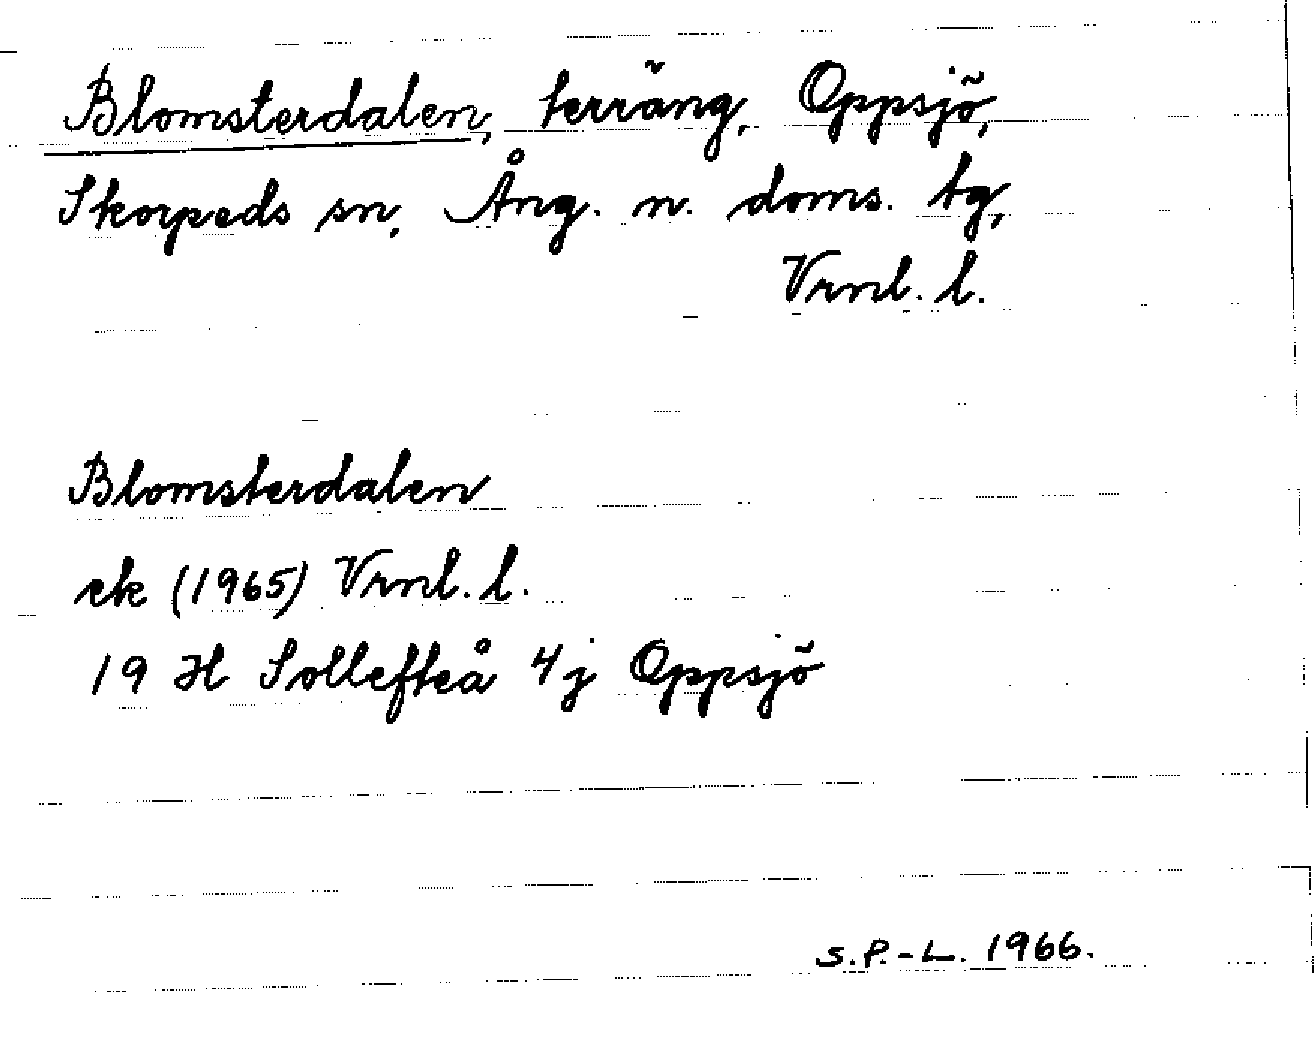 Blomsterdalen, terräng, Oppsjö,
Skorpeds sn, Ång. n. doms. tg,
Vrnl. l.
Blomsterdalen
ek (1965) Vrnl. l.
19 H Sollefteå 4j Oppsjö
S.P.-L. 1966.